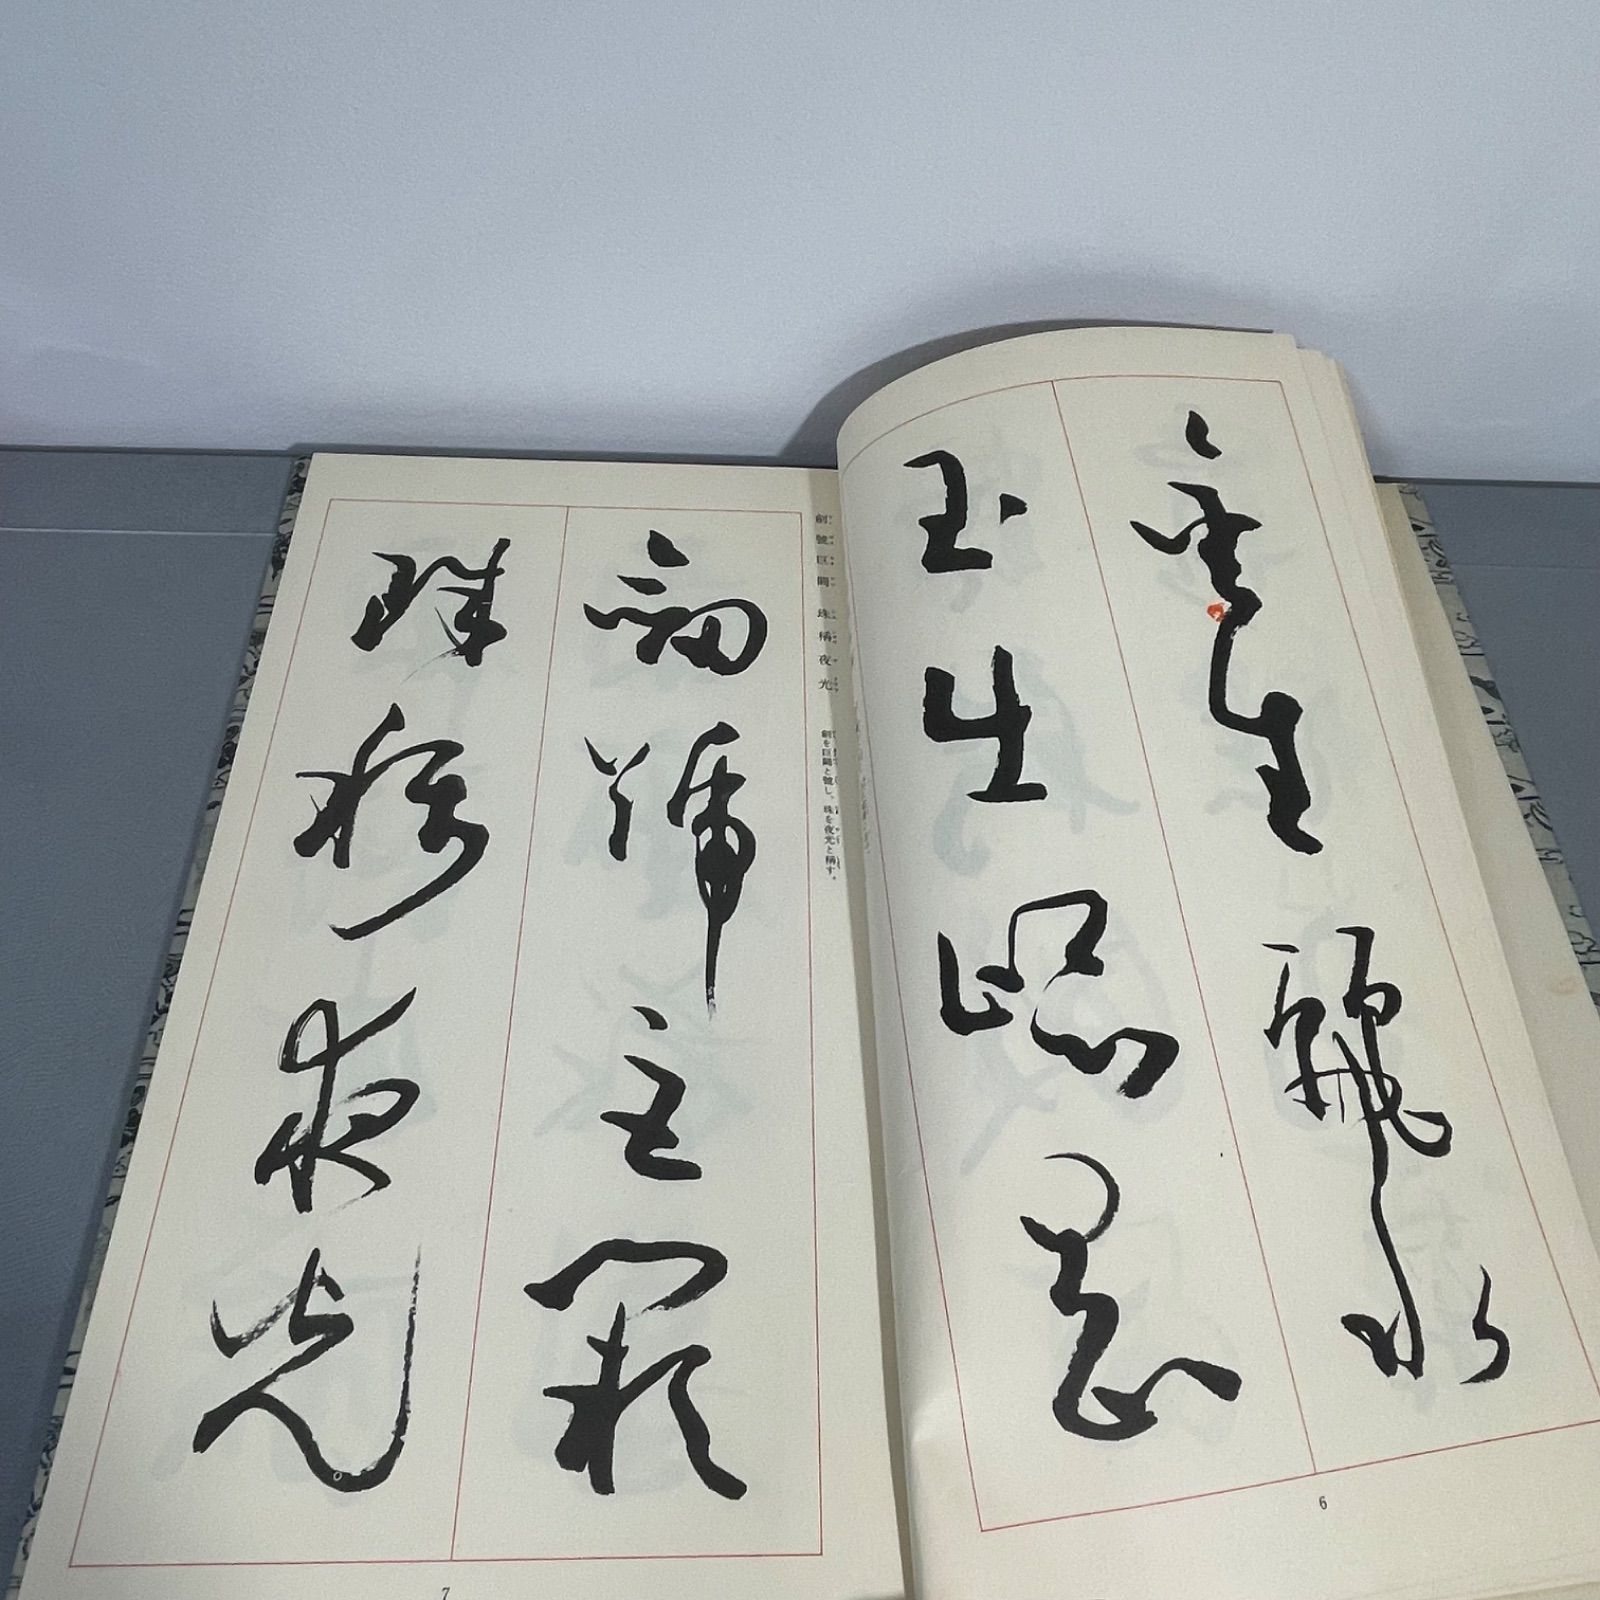 金生麗水
玉出崑岡
6
劍號巨闕 珠稱夜光
劍を巨闕と號し、珠を夜光と稱す。
劍號巨闕
珠稱夜光
7